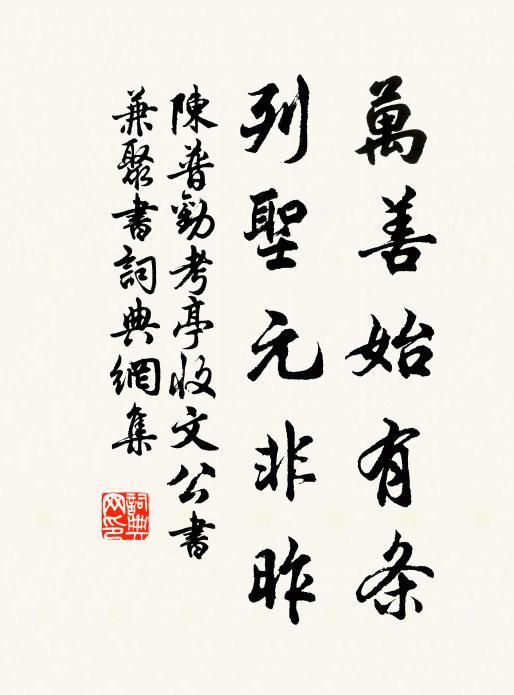 萬善始有条
列聖元非昨
陳普勸考亭收文公書
兼聚書詞典網集
詞典
网印